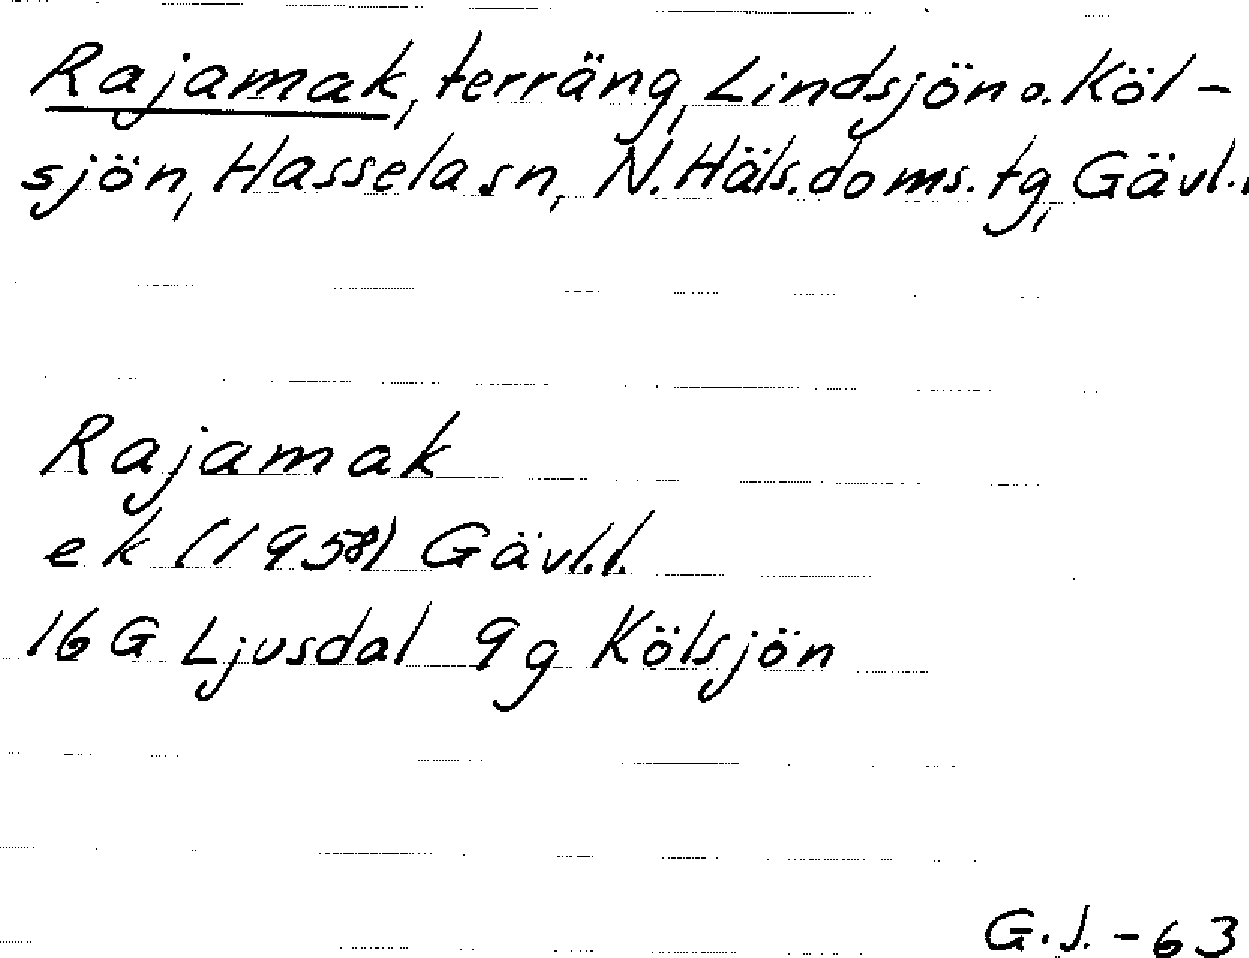 Rajamak, terräng, Lindsjön o. Köl-
sjön, Hassela sn, N. Häls. doms. tg, Gävl. l
Rajamak
ek (1958) Gävl. l.
16 G Ljusdal 9g Kölsjön
G.J. - 63